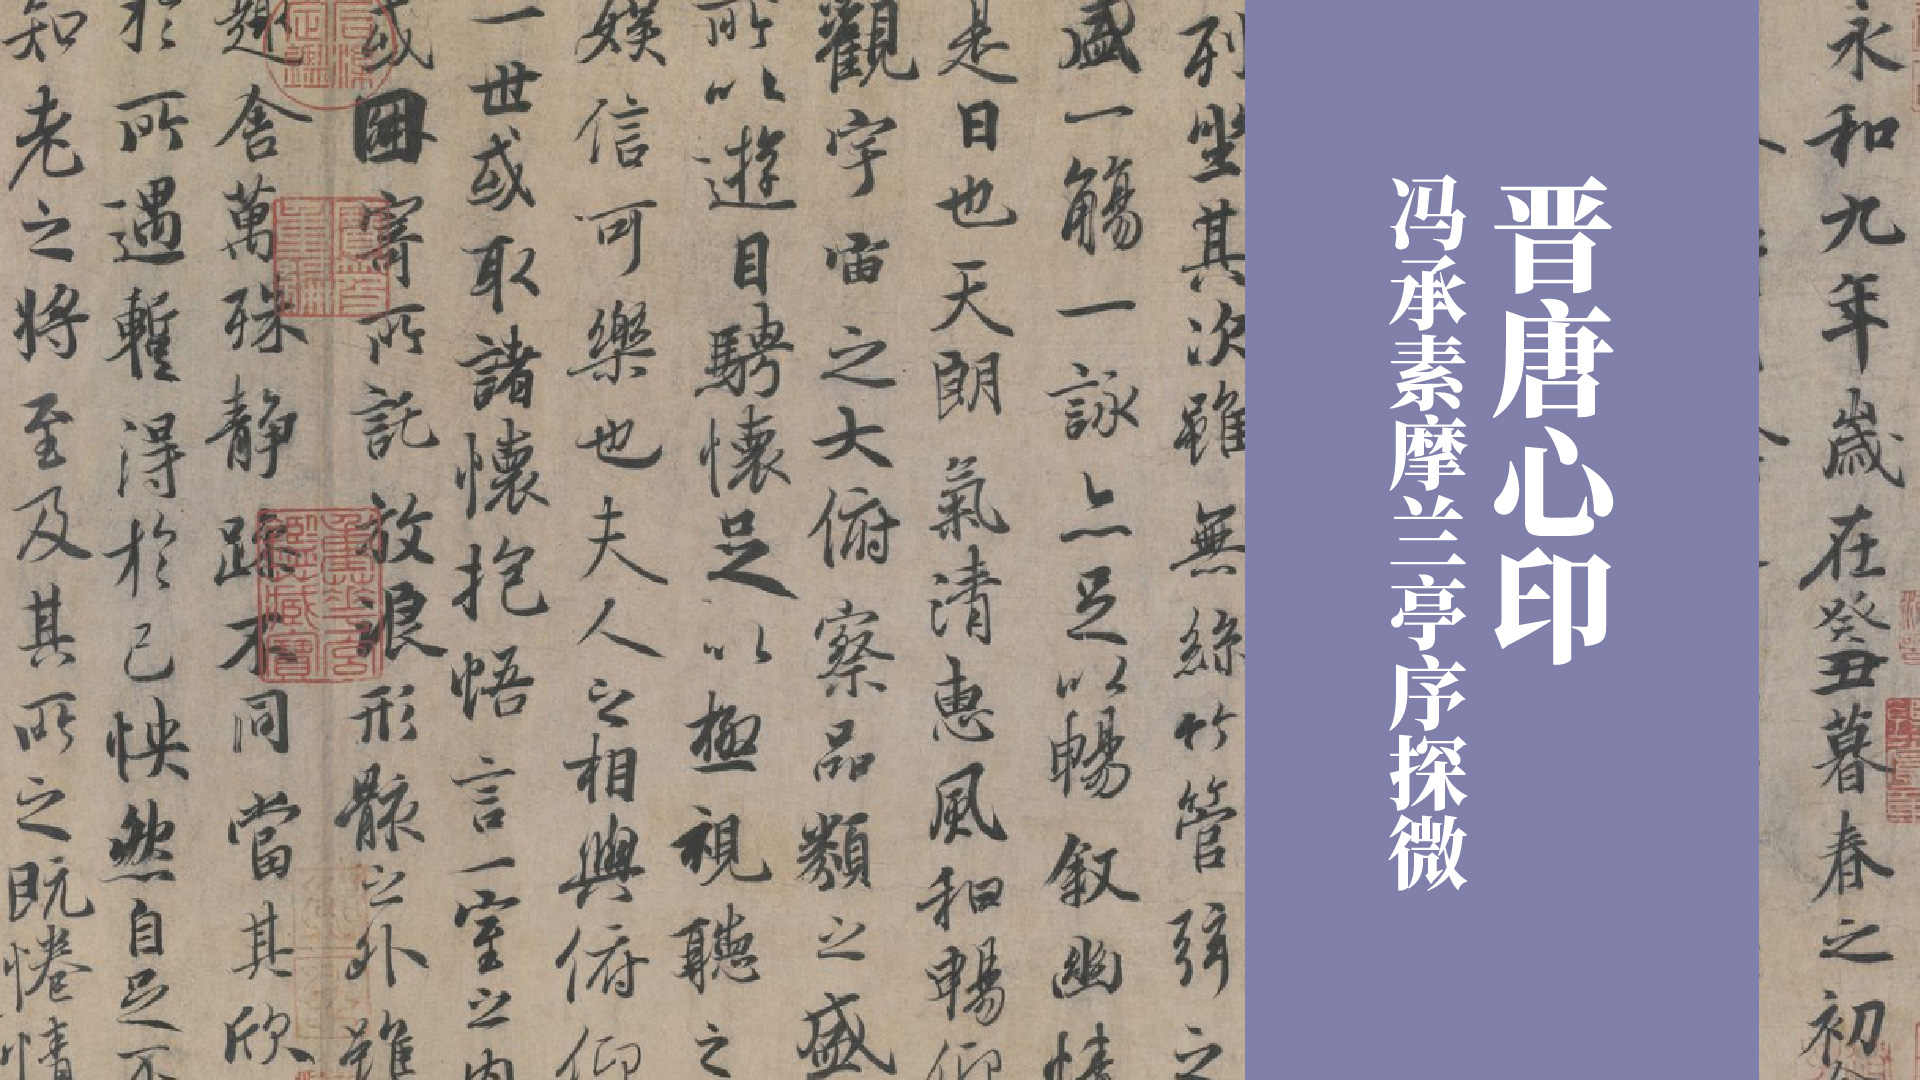 永和九年歲在癸丑暮春之初
晋唐心印
冯承素摩兰亭序探微
列坐其次雖無絲竹管弦之
盛一觴一詠亦足以暢叙幽情
是日也天朗氣清惠風和暢仰
觀宇宙之大俯察品類之盛
所以遊目騁懷足以極視聽之
娛信可樂也夫人之相與俯仰
一世或取諸懷抱悟言一室之內
或因寄所託放浪形骸之外雖
趣舍萬殊静躁不同當其欣
於所遇暫得於己怏然自足不
知老之將至及其所之既惓情